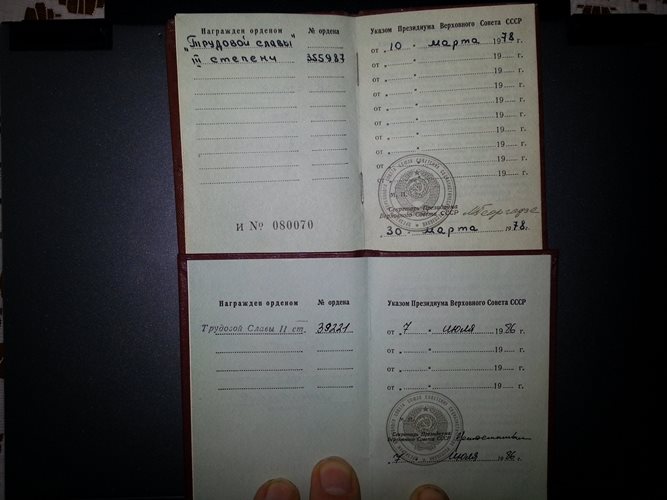 Награжден орденом № ордена
"Трудовой славы"
III степени 355987
И № 080070
Указом Президиума Верховного Совета СССР
от „ 10 " марта 1978 г.
от „ " 19 г.
от „ " 19 г.
от „ " 19 г.
от „ " 19 г.
от „ " 19 г.
от „ " 19 г.
от „ " 19 г.
от „ " 19 г.
М. П.
Секретарь Президиума
Верховного Совета СССР
„ 30 " марта 1978 г.
Награжден орденом № ордена
Трудовой Славы II ст. 39221
Указом Президиума Верховного Совета СССР
от „ 7 " июля 1986 г.
от „ " 19 г.
от „ " 19 г.
от „ " 19 г.
Секретарь Президиума
Верховного Совета СССР
„ 7 " июля 1986 г.